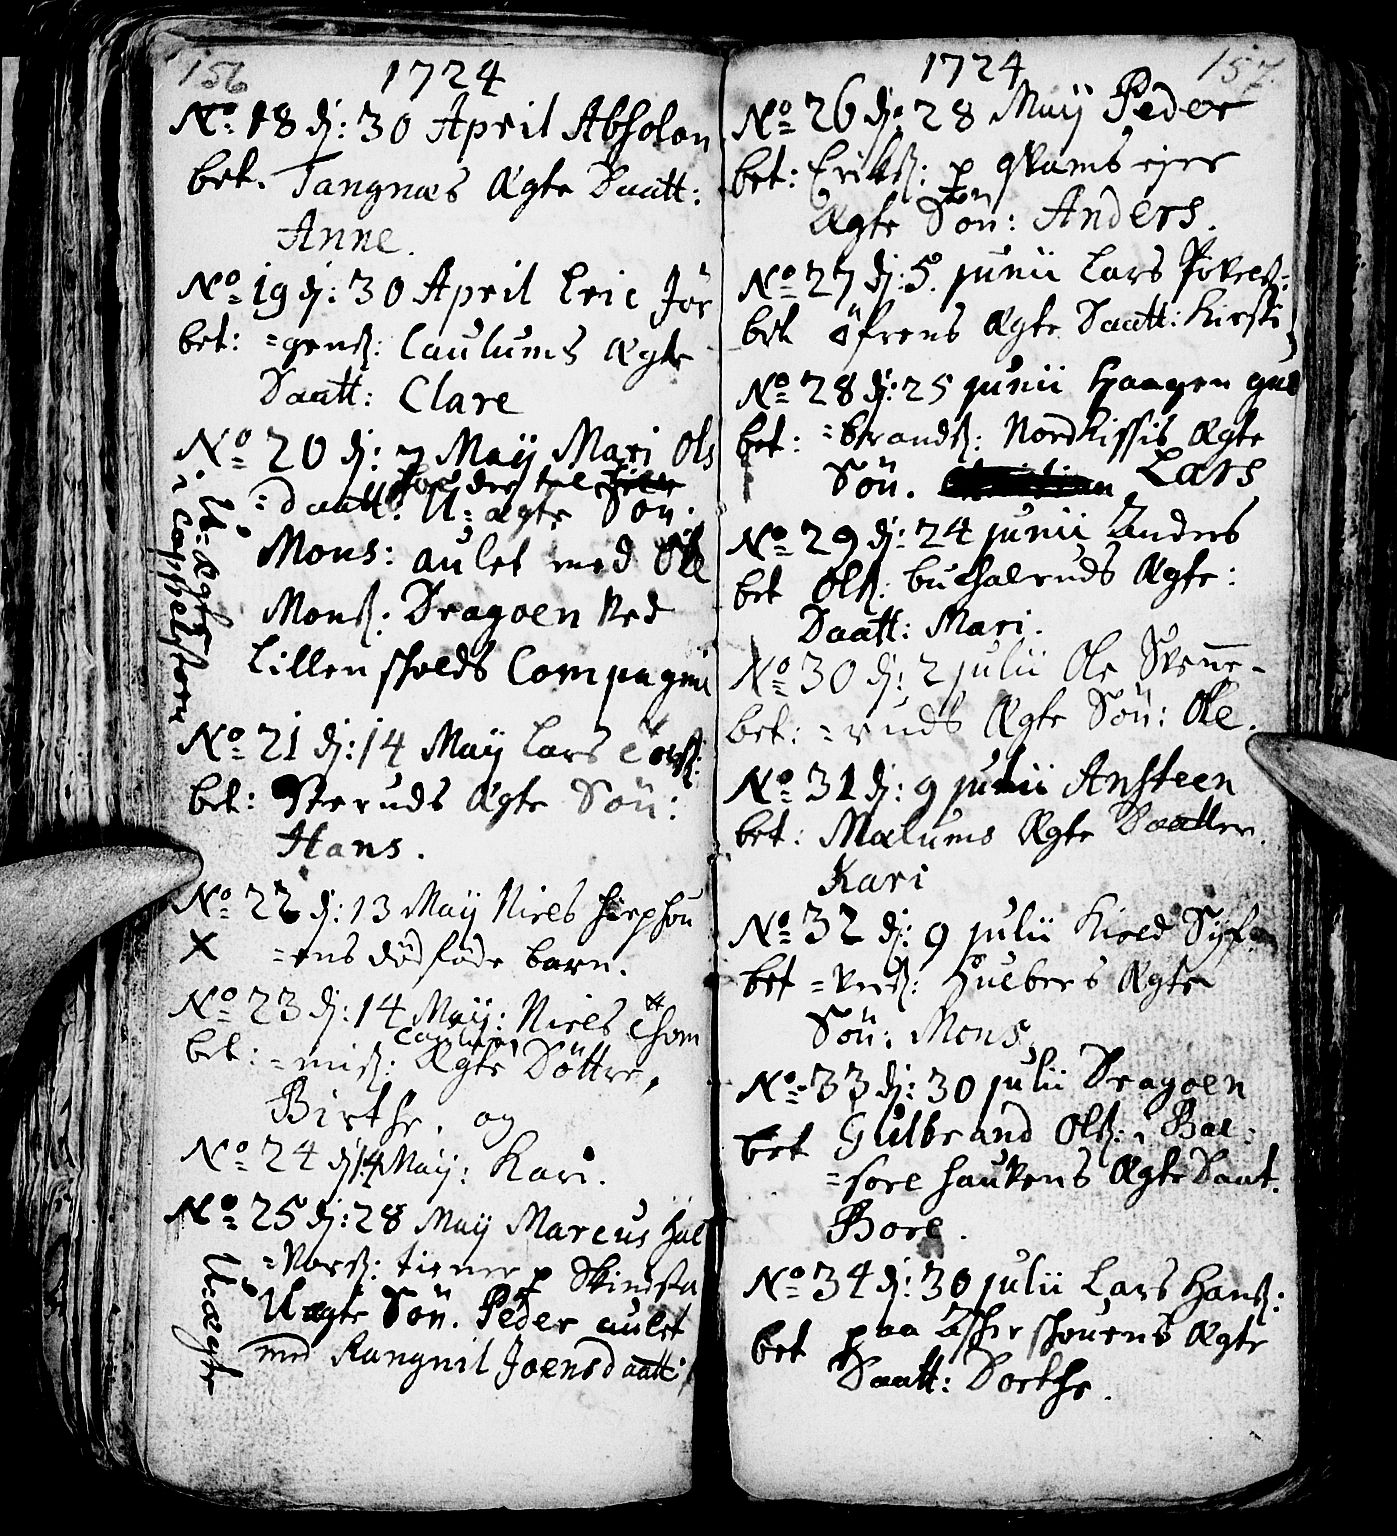 156
1724
No 18 dj: 30 April Absolon
bet. Tangnæs Ægte Daatt:
Anne.
No 19 dj: 30 April Eric Jör
bet: =gensß: Caulums Ægte
Daatt: Clare
No 20 dj: 7 Maij Mari Ols
=daatt: U=ægte Sön.
Mons: aulet med Ole
Monsß: Dragoen ved
Lillenskolds Compagni
U=ægte
i Cappelstoen
No 21 dj: 14 Maij Lars
bet: Steruds Ægte Sön:
Hans.
No 22 dj: 13 Maij Niels
X =ens dödföde barn.
No 23 dj: 14 Maij: Niels Thom
bet: =misß: Ægte Döttre,
Birthe. og
No 24 dj 14 Maij: Kari.
No 25 dj: 28 Maij Marcus Hal
=vorsß: tiener p Skimsta
U:ægte
Uægte Sön. Peder aulet
med Rangnil Joensdaatt:
157
1724
No 26 dj: 28 Maij Peder
bet: Eriksß: p qvamsejer
Ægte Sön: Anders.
No 27 dj: 5 junii Lars
bet öfrens Ægte Daatt: Kirsti
No 28 dj: 25 junii Haagen Gul
bet: =brandsß: Nordlissis Ægte
Sön. Lars
No 29 dj: 24 junii Anders
bet Olsß: buchalruds Ægte:
Daatt: Mari.
No 30 dj: 2 julii Ole Skenne-
bet: =ruds Ægte Sön: Ole.
No 31 dj: 9 julii Ansteen
bet: Mælums Ægte Daatter.
Kari
No 32 dj: 9 julii Kield Syf
bet =versß: Hulbers Ægte
Sön: Mons.
No 33 dj: 30 julii Dragoen
bet Gulbrand Olsß: i Bal:
=fore haukens Ægte Daat.
Borel.
No 34 dj: 30 julii Lars Hansß:
bet paa Ægte
Daatt: Dorthe.